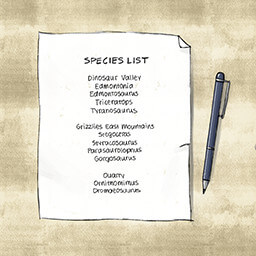 SPECIES LIST
Dinosaur Valley
Edmontonia
Edmontosaurus
Triceratops
Tyranosaurus
Grizzlies East Mountains
Stegoceras
Styracosaurus
Parasaurolophus
Gorgosaurus
Quarry
Ornithomimus
Dromatosaurus